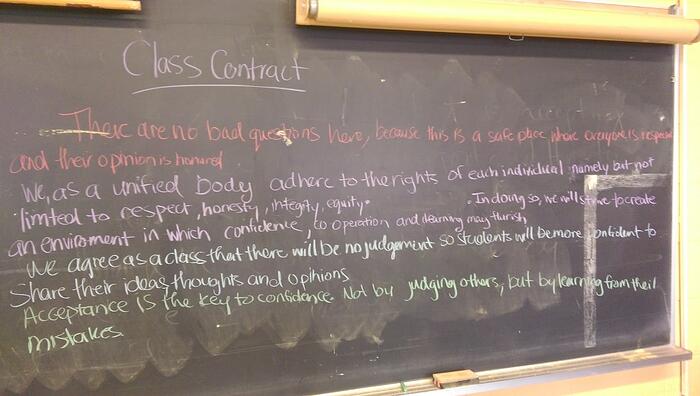 Class Contract
There are no bad questions here, because this is a safe place where everyone is respected
and their opinion is honored
We, as a unified body adhere to the rights of each individual namely but not
limted to respect, honesty, integrity, equity. In doing so, we will strive to create
an enviroment in which confidence, co operation and learning may flurish
We agree as a class that there will be no judgement so students will be more confident to
Share their ideas, thoughts and opinions
Acceptance is the key to confidence. Not by judging others, but by learning from their
mistakes.